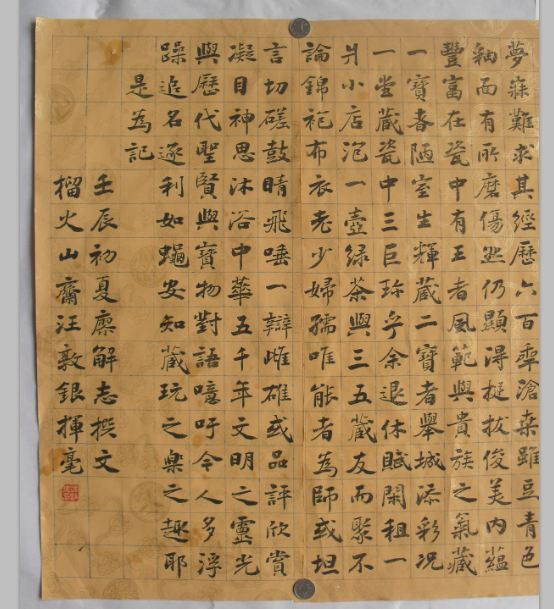 夢寐難求其經歷六百秊滄桑雖豆青色
釉而有所磨傷然仍顯得挺拔俊美內蘊
豐富在瓷中有王者風範與貴族之氣藏
一寶者陋室生輝藏二寶者舉城添彩況
一堂藏瓷中三巨珎乎余退休賦閑租一
爿小店泡一壺綠茶與三五藏友而聚不
論錦袍布衣老少婦孺唯能者為師或坦
言切磋鼓睛飛唾一辯雌雄或品評欣賞
凝目神思沐浴中華五千年文明之靈光
與歷代聖賢與寶物對語噫吁今人多浮
躁追名逐利如蠅安知藏玩之樂之趣耶
是為記
壬辰初夏廖解志撰文
榴火山齋汪敦銀揮毫